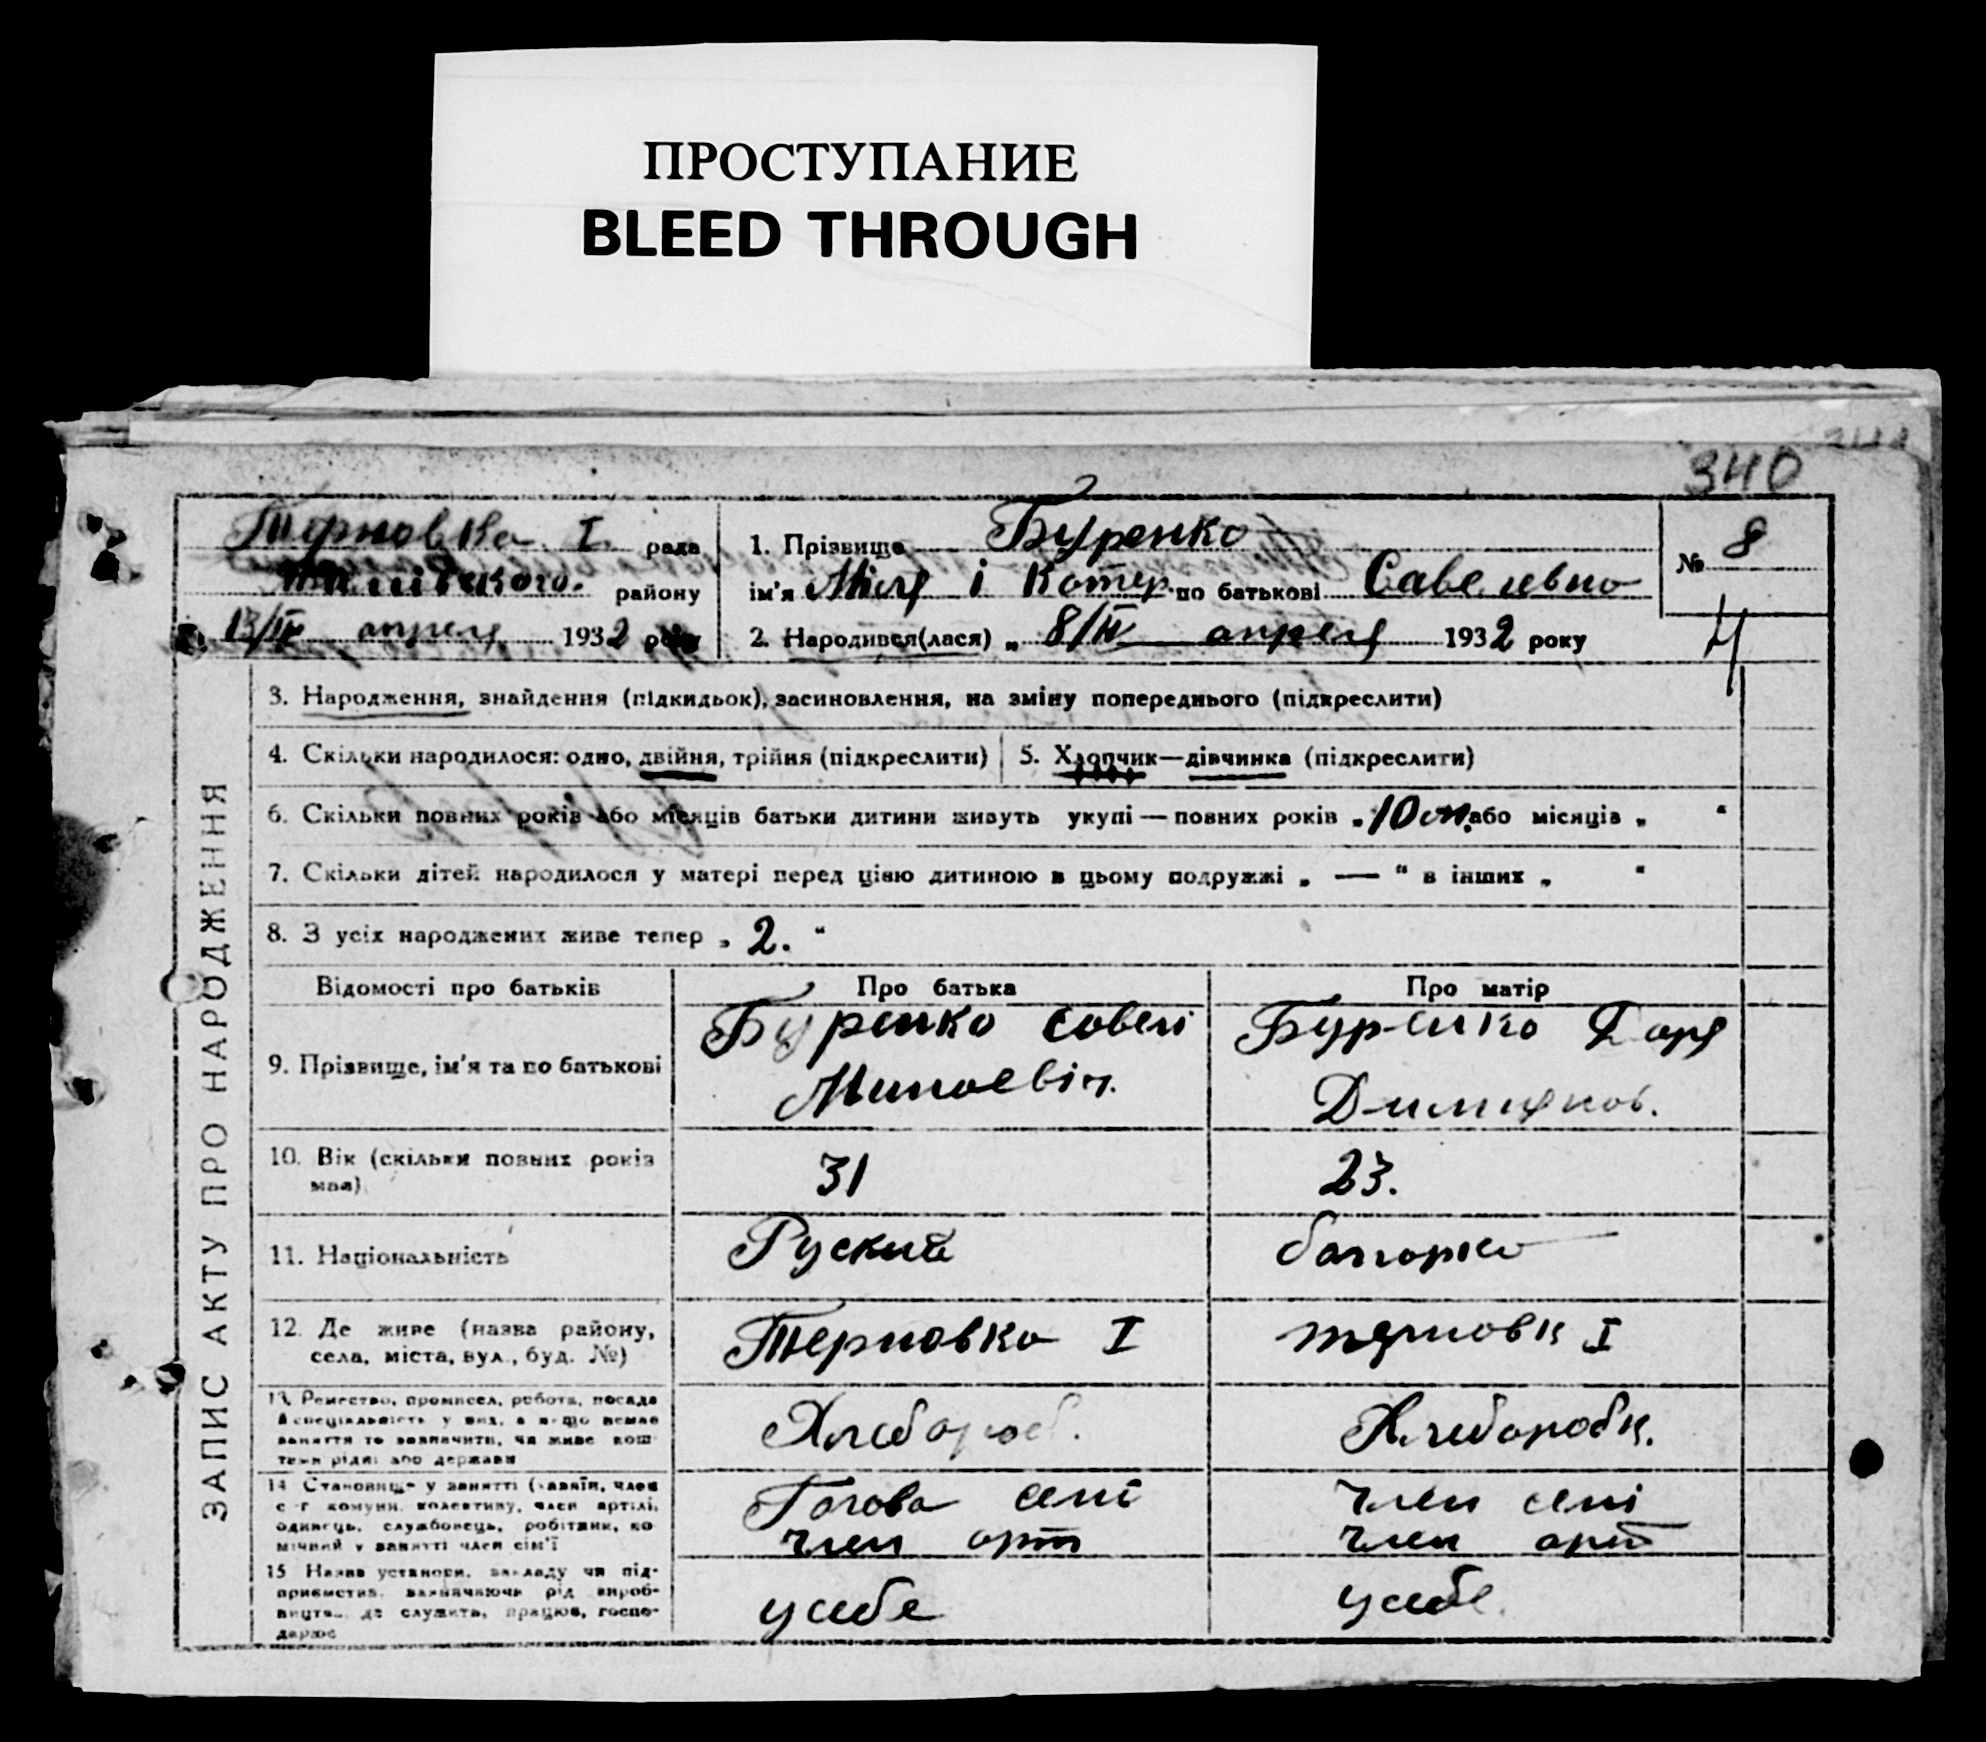 ПРОСТУПАНИЕ
BLEED THROUGH
340
Терновка I рада
району
13/IV апреля 1932 року
1. Прізвище Буренко
ім'я і Котер. по батькові Савелевна
2. Народився(лася) „ 8/IV апреля 1932 року
№ 8
4
ЗАПИС АКТУ ПРО НАРОДЖЕННЯ
3. Народження, знайдення (підкидьок), засиновлення, на зміну попереднього (підкреслити)
4. Скільки народилося: одно, двійня, трійня (підкреслити)
5. Хлопчик—дівчинка (підкреслити)
6. Скільки повних років або місяців батьки дитини живуть укупі — повних років „ 10 м. або місяців „ “
7. Скільки дітей народилося у матері перед цією дитиною в цьому подружжі „ — “ в інших „ “
8. З усіх народжених живе тепер „ 2. “
Відомості про батьків Про батька Про матір
9. Прізвище, ім'я та по батькові
Буренко Савелі
Буренко Даря
10. Вік (скільки повних років має)
31
23.
11. Національність
Руский
болгорка
12. Де живе (назва району,
села, міста, вул., буд. №)
Терновка I
терновк I
13. Ремество, промисел, робота, посада
й спеціальність у них, а якщо немає
заняття то зазначити, чи живе кош-
тами рідні або держави
Хлебороб.
Хлеборобк.
14. Становище у занятті (хазяїн, член
с-г комуни, колективу, член артілі,
одинець, службовець, робітник, по-
мічний у занятті член сім'ї
Голова семі
член арт
член семі
член арт
15. Назва установи, закладу чи під-
приємства, зазначаючи рід вироб-
ництва, де служить, працює, госпо-
дарює
у себе
у себе